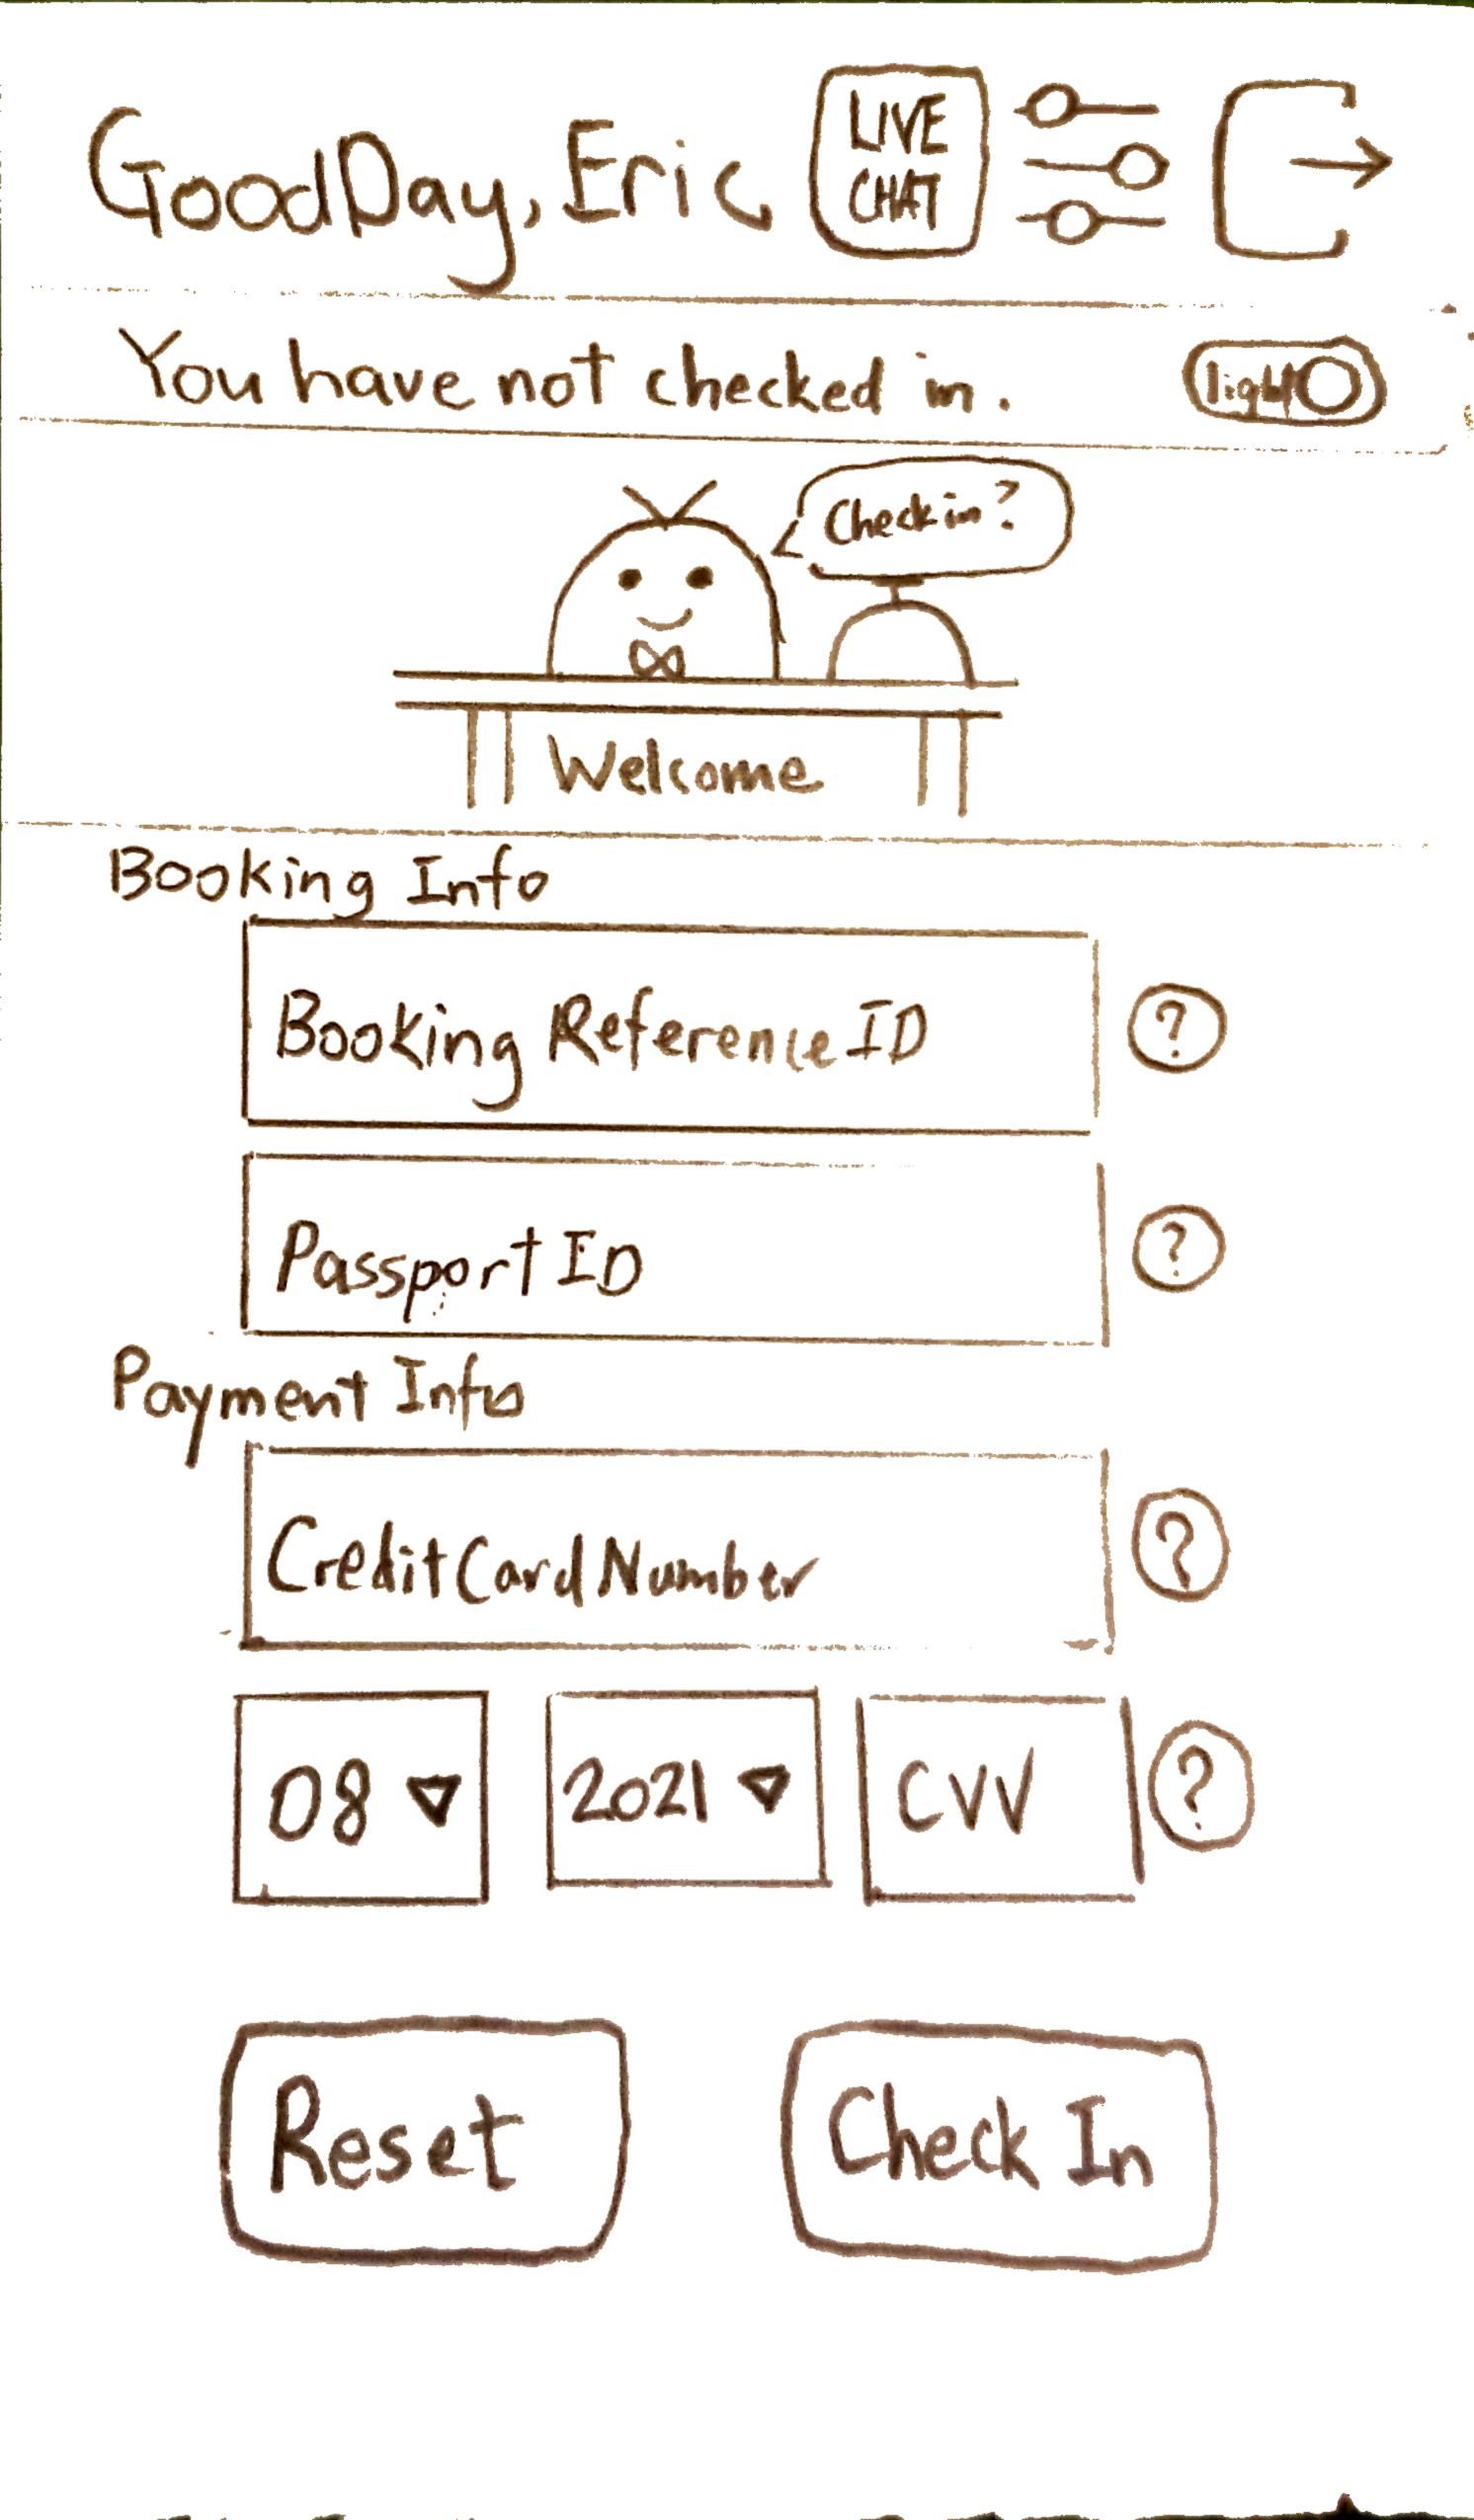 GoodDay, Eric
LIVE
CHAT
You have not checked in.
light
Check in?
Welcome
Booking Info
Booking Reference ID
?
Passport ID
?
Payment Info
Credit Card Number
?
08
2021
CVV
?
Reset
Check In